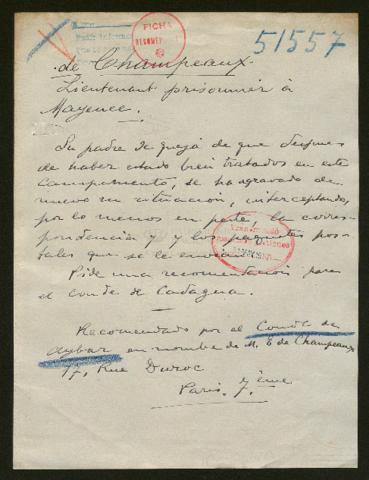 FICHA
51557
de Champeaux.
Lieutenant prisonnier à
Mayence.
Su padre se queja de que despues
de haber estado bien tratados en este
campamento, se ha agravado de
nuevo su situacion, interceptando,
por lo menos en parte, la corres-
pondencia y los paquetes pos-
tales que se le envian.
Pide una recomendacion para
el conde de Cadagua.
Recomendado por el Conde de
Aybar en nombre de M. E de Champeaux
17, Rue Duroc
Paris. 7ème